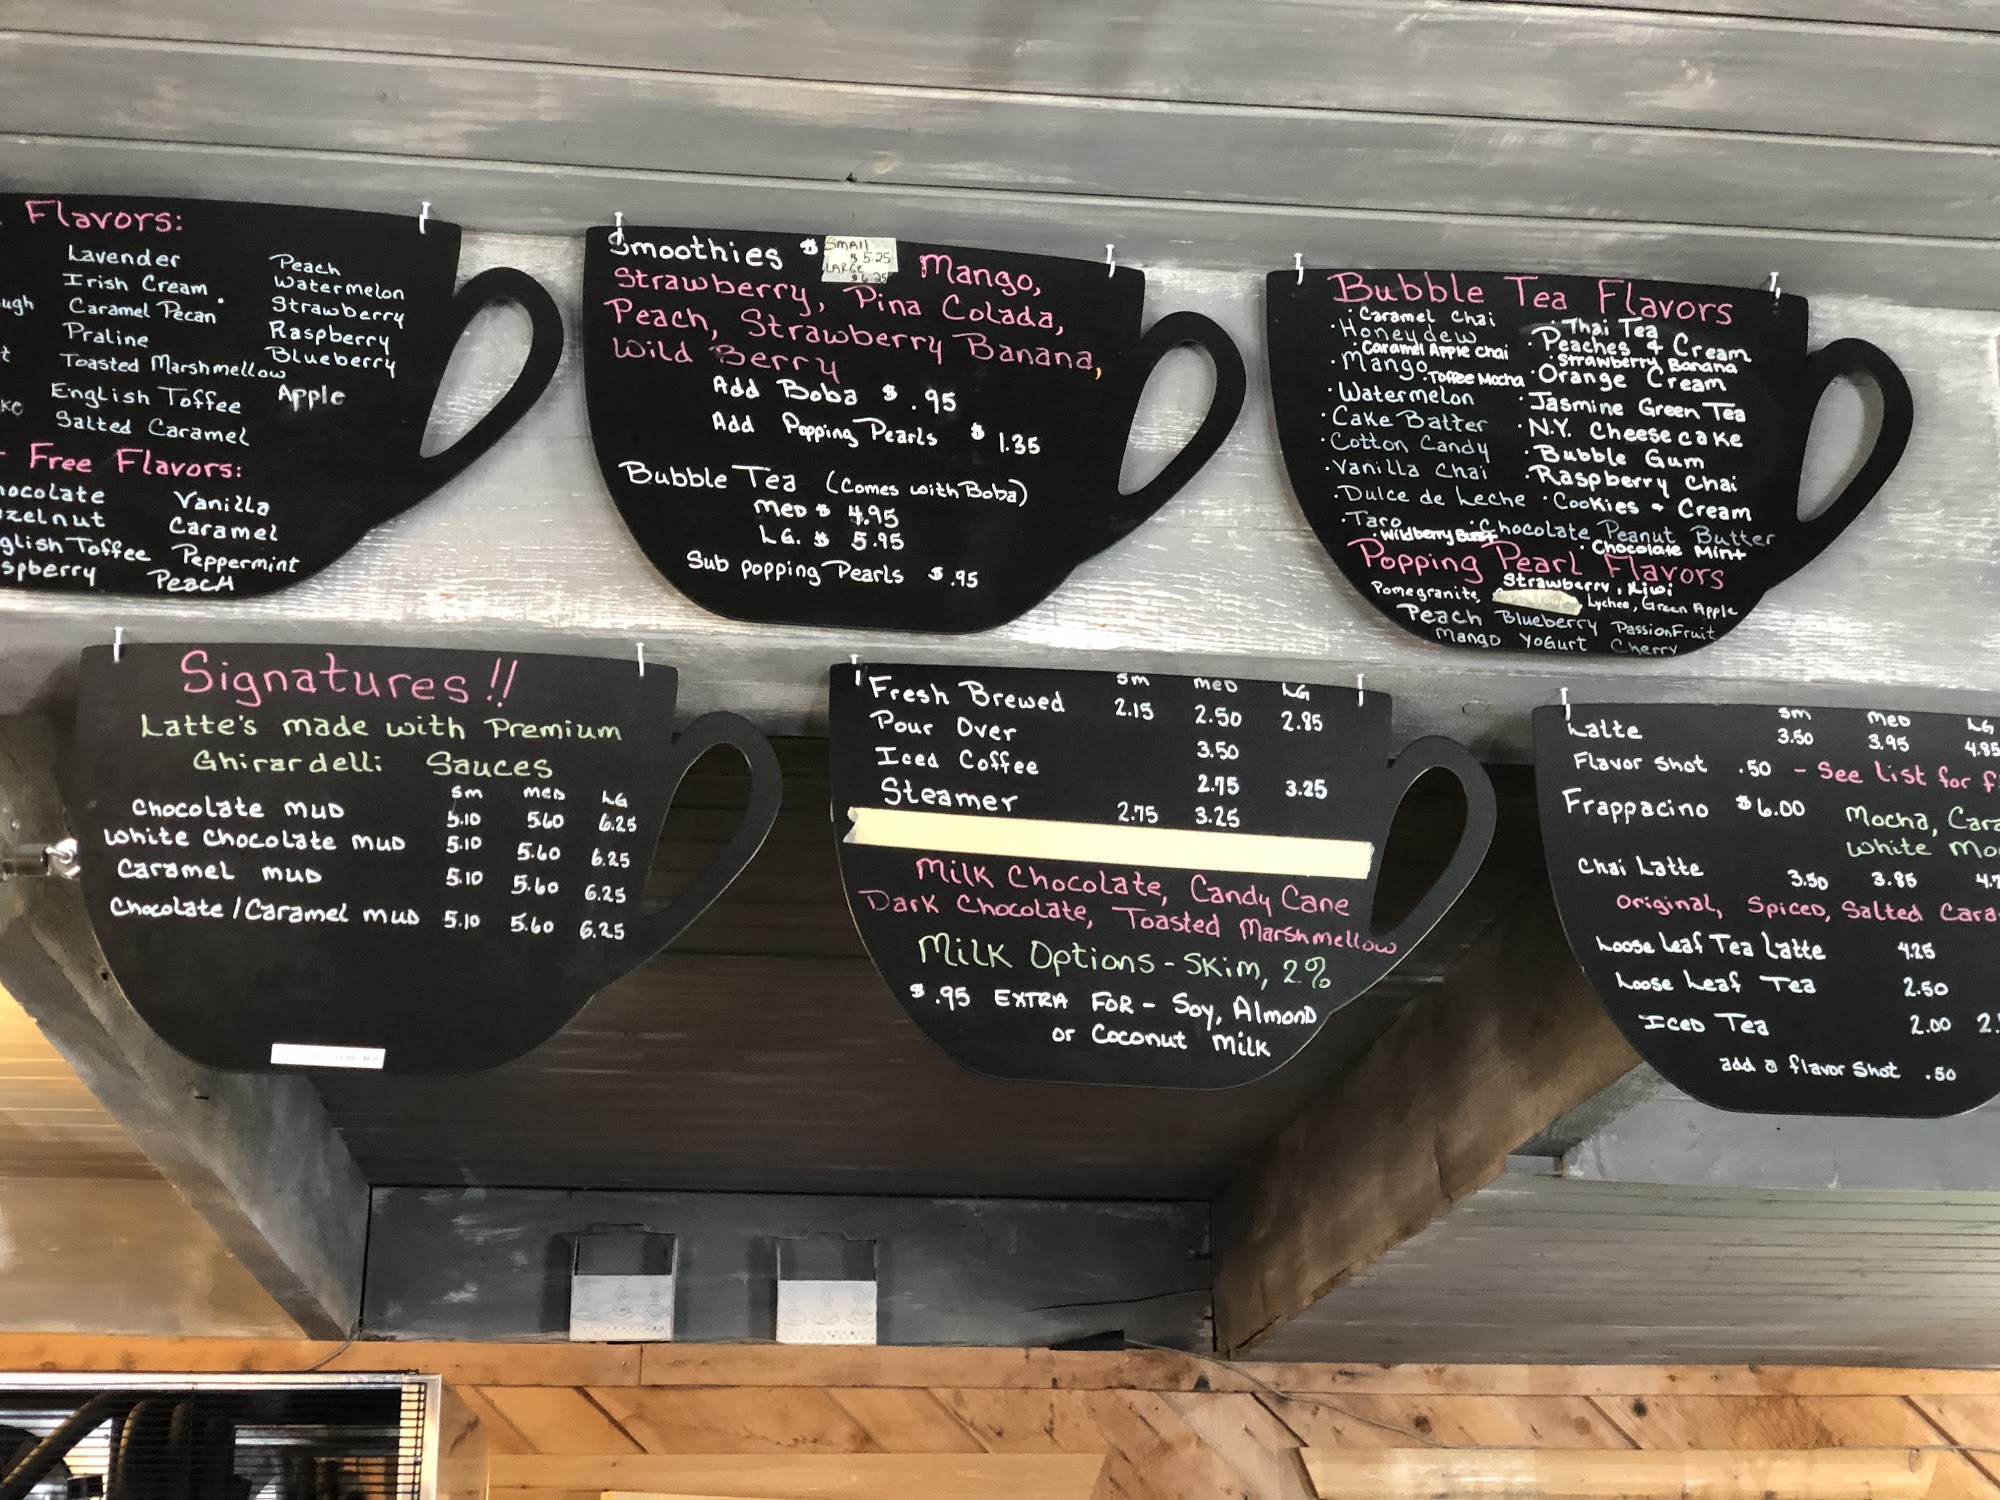 Flavors:
Lavender Peach
Irish Cream Watermelon
ugh Caramel Pecan Strawberry
Praline Raspberry
t Toasted Marshmellow Blueberry
English Toffee Apple
ke Salted Caramel
Free Flavors:
hocolate Vanilla
zelnut Caramel
glish Toffee Peppermint
spberry Peach
Smoothies $ Small $5.25 Large $6.25 Mango,
Strawberry, Pina Colada,
Peach, Strawberry Banana,
Wild Berry
Add Boba $ .95
Add Popping Pearls $ 1.35
Bubble Tea (Comes with Boba)
Med $ 4.95
LG. $ 5.95
Sub popping Pearls $ .95
Bubble Tea Flavors
• Caramel Chai • Thai Tea
• Honeydew • Peaches & Cream
• Caramel Apple Chai • Strawberry Banana
• Mango • Toffee Mocha • Orange Cream
• Watermelon • Jasmine Green Tea
• Cake Batter • N.Y. Cheesecake
• Cotton Candy • Bubble Gum
• Vanilla Chai • Raspberry Chai
• Dulce de Leche • Cookies & Cream
• Taro • Chocolate Peanut Butter
• Wildberry Burst • Chocolate Mint
Popping Pearl Flavors
Strawberry, Kiwi
Pomegranite, Lychee, Green Apple
Peach Blueberry PassionFruit
Mango Yogurt Cherry
Signatures!!
Latte's made with Premium
Ghirardelli Sauces
Sm Med LG
Chocolate Mud 5.10 5.60 6.25
White Chocolate Mud 5.10 5.60 6.25
Caramel Mud 5.10 5.60 6.25
Chocolate/Caramel Mud 5.10 5.60 6.25
Sm Med LG
Fresh Brewed 2.15 2.50 2.85
Pour Over 3.50
Iced Coffee 2.75 3.25
Steamer 2.75 3.25
Milk Chocolate, Candy Cane
Dark Chocolate, Toasted Marshmellow
Milk Options - Skim, 2%
$ .95 Extra For - Soy, Almond
or Coconut Milk
Sm Med LG
Latte 3.50 3.95 4.85
Flavor Shot .50 - See list for f
Frappacino $6.00 Mocha, Cara
White Mo
Chai Latte 3.50 3.85 4.7
Original, Spiced, Salted Cara
Loose Leaf Tea Latte 4.25
Loose Leaf Tea 2.50
Iced Tea 2.00 2.
add a flavor shot .50